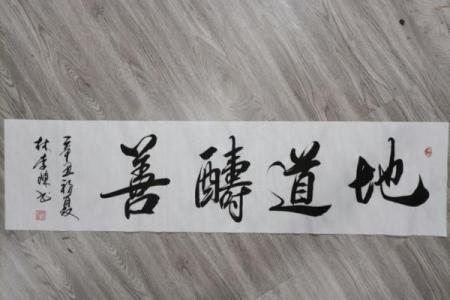 地道醻善
辛丑初夏